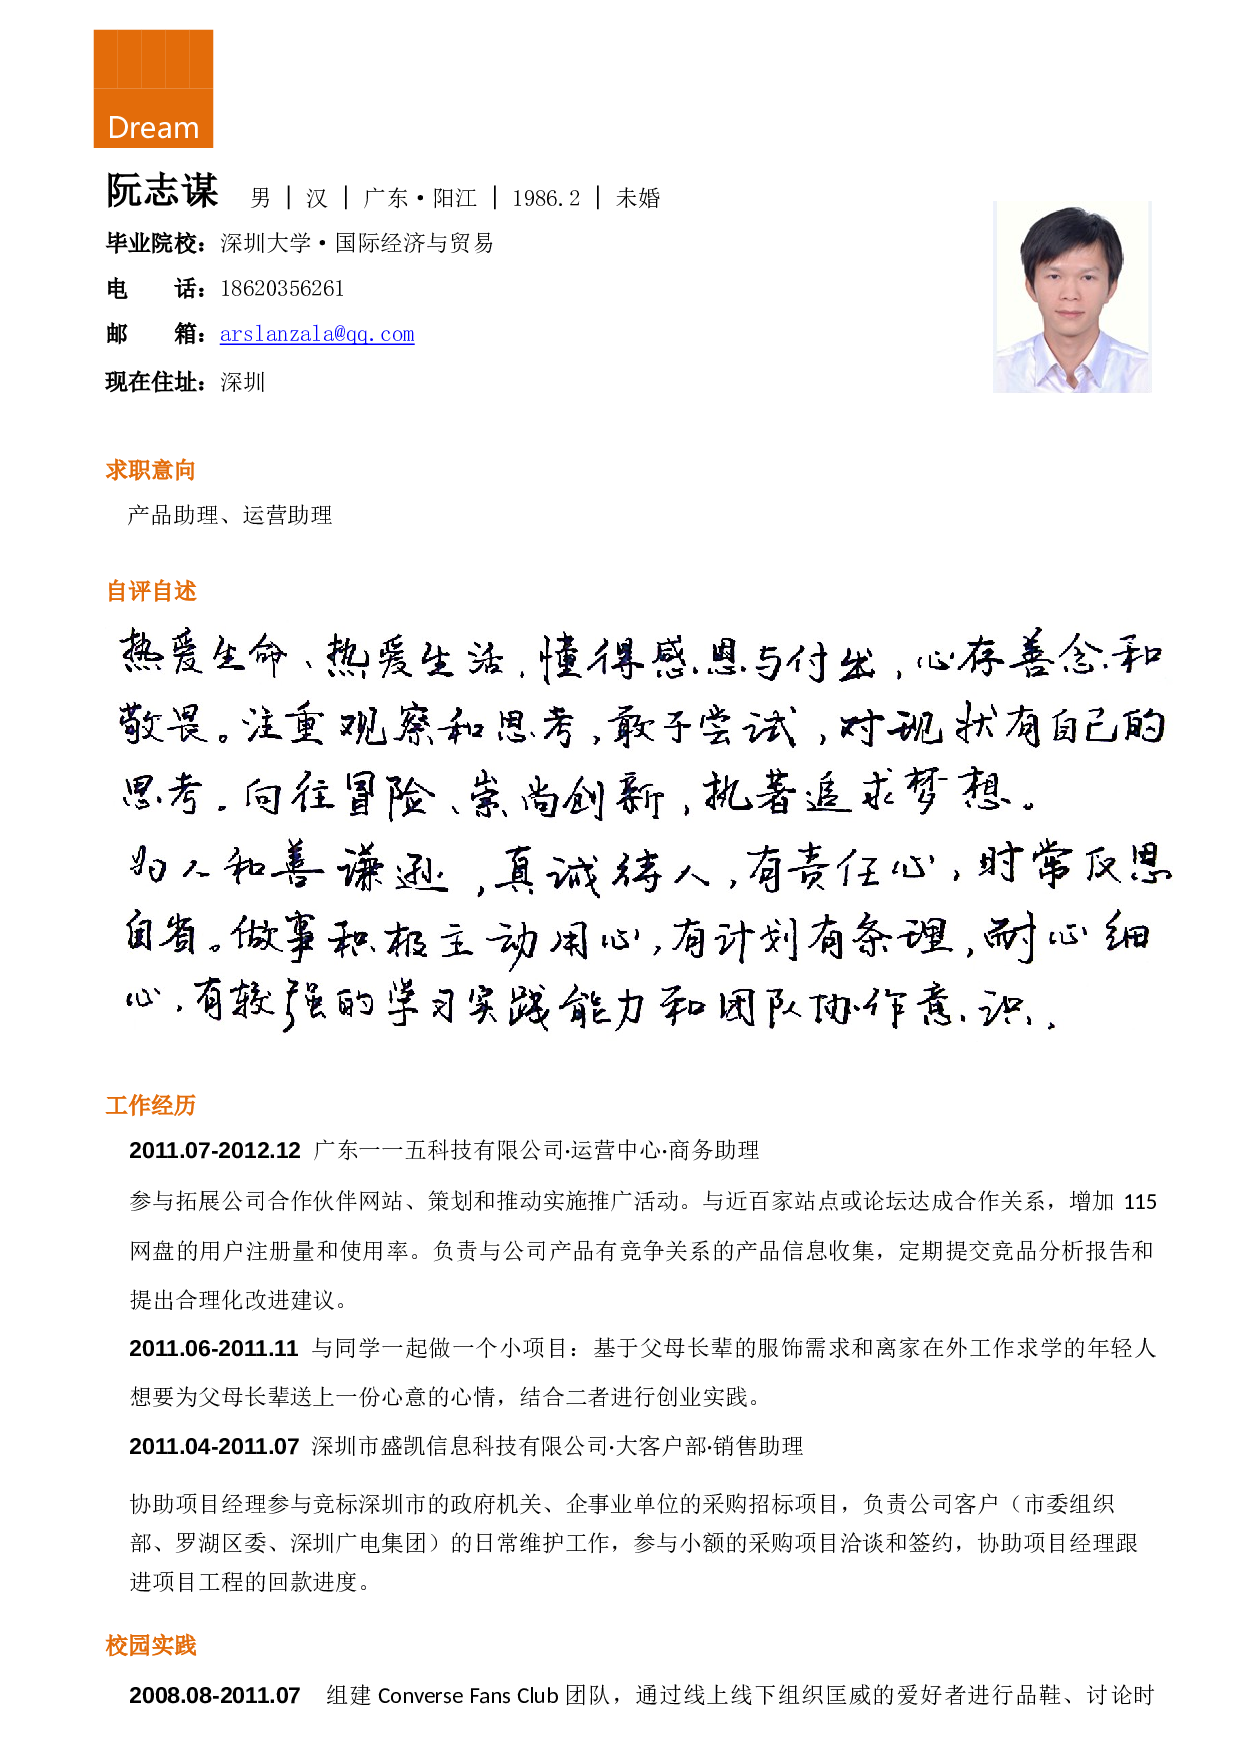 Dream
阮志谋 男 | 汉 | 广东·阳江 | 1986.2 | 未婚
毕业院校：深圳大学·国际经济与贸易
电 话：18620356261
邮 箱：arslanzala@qq.com
现在住址：深圳
求职意向
产品助理、运营助理
自评自述
热爱生命、热爱生活，懂得感恩与付出，心存善念和
敬畏。注重观察和思考，敢于尝试，对现状有自己的
思考。向往冒险、崇尚创新，执著追求梦想。
为人和善谦逊，真诚待人，有责任心，时常反思
自省。做事积极主动用心，有计划有条理，耐心细
心，有较强的学习实践能力和团队协作意识．
工作经历
2011.07-2012.12 广东一一五科技有限公司·运营中心·商务助理
参与拓展公司合作伙伴网站、策划和推动实施推广活动。与近百家站点或论坛达成合作关系，增加 115
网盘的用户注册量和使用率。负责与公司产品有竞争关系的产品信息收集，定期提交竞品分析报告和
提出合理化改进建议。
2011.06-2011.11 与同学一起做一个小项目：基于父母长辈的服饰需求和离家在外工作求学的年轻人
想要为父母长辈送上一份心意的心情，结合二者进行创业实践。
2011.04-2011.07 深圳市盛凯信息科技有限公司·大客户部·销售助理
协助项目经理参与竞标深圳市的政府机关、企事业单位的采购招标项目，负责公司客户（市委组织
部、罗湖区委、深圳广电集团）的日常维护工作，参与小额的采购项目洽谈和签约，协助项目经理跟
进项目工程的回款进度。
校园实践
2008.08-2011.07 组建 Converse Fans Club 团队，通过线上线下组织匡威的爱好者进行品鞋、讨论时